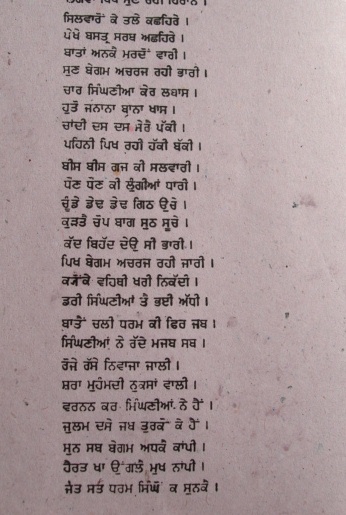 ਸਿਲਵਾਰੋਂ ਕੇ ਤਲੇ ਕਛਹਿਰੇ ।
ਪੰਖੇ ਬਸਤ੍ਰ ਸਰਬ ਅਛਹਿਰੇ ।
ਬਾਤਾਂ ਅਨਕੈ ਮਰਦੋਂ ਵਾਰੀ ।
ਸੁਣ ਬੇਗਮ ਅਚਰਜ ਰਹੀ ਭਾਰੀ ।
ਚਾਰ ਸਿੰਘਣੀਆ ਕੇਰ ਲਬਾਸ ।
ਹੁਤੋ ਜਨਾਨਾ ਬਾਨਾ ਖਾਸ ।
ਚਾਂਦੀ ਦਸ ਦਸ ਸੇਰੈ ਪੱਕੀ ।
ਪਹਿਨੀ ਪਿਖ ਰਹੀ ਹੱਕੀ ਬੱਕੀ ।
ਬੀਸ ਬੀਸ ਗਜ ਕੀ ਸਲਵਾਰੀ ।
ਧੌਣ ਧੌਣ ਕੀ ਲੁੰਗੀਆਂ ਧਾਰੀ ।
ਚੂੰਡੇ ਡੇਢ ਡੇਢ ਗਿਠ ਉਚੇ ।
ਕੁੜਤੈ ਚੋਪ ਬਾਗ ਸੁਠ ਸੂਚੇ ।
ਕੱਦ ਬਿਹੱਦ ਦੇਉ ਸੀ ਭਾਰੀ ।
ਪਿਖ ਬੇਗਮ ਅਚਰਜ ਰਹੀ ਜਾਰੀ ।
ਵਹਿਥੀ ਖਰੀ ਨਿਕੱਦੀ ।
ਡਰੀ ਸਿੰਘਣੀਆਂ ਤੈ ਭਈ ਅੱਧੀ ।
ਬਾਤੈਂ ਚਲੀ ਧਰਮ ਕੀ ਫਿਰ ਜਬ ।
ਸਿੰਘਣੀਆਂ ਨੇ ਰੱਦੇ ਮਜਬ ਸਬ ।
ਰੋਜੇ ਰੱਸੇ ਨਿਵਾਜਾ ਜਾਲੀ ।
ਸ਼ਰਾ ਮੁਹੰਮਦੀ ਨੁਕਸਾਂ ਵਾਲੀ ।
ਵਰਨਨ ਕਰ ਸਿੰਘਣੀਆਂ ਨੇ ਹੈਂ ।
ਜੁਲਮ ਦਸੇ ਜਬ ਤੁਰਕੋਂ ਕੇ ਹੈਂ ।
ਸੁਨ ਸਬ ਬੇਗਮ ਅਧਕੈ ਕਾਂਪੀ ।
ਹੈਰਤ ਖਾ ਉਂਗਲੈ ਮੁਖ ਨਾਂਪੀ ।
ਜੰਤ ਸਤ ਧਰਮ ਸਿੰਘੋਂ ਕ ਸੁਨਕੈ ।